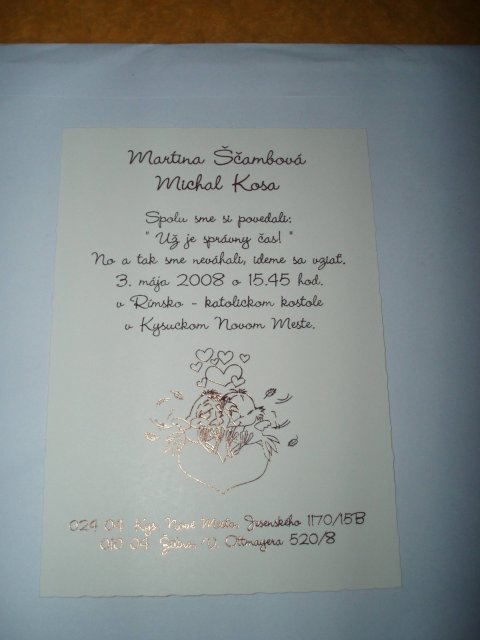 Martina Ščambová
Michal Kosa
Spolu sme si povedali:
" Už je správny čas! "
No a tak sme neváhali, ideme sa vziať.
3. mája 2008 o 15.45 hod.
v Rímsko - katolíckom kostole
v Kysuckom Novom Meste.
024 04 Kys. Nové Mesto, Jesenského 1170/15B
010 04 Žilina, V. Ottmayera 520/8